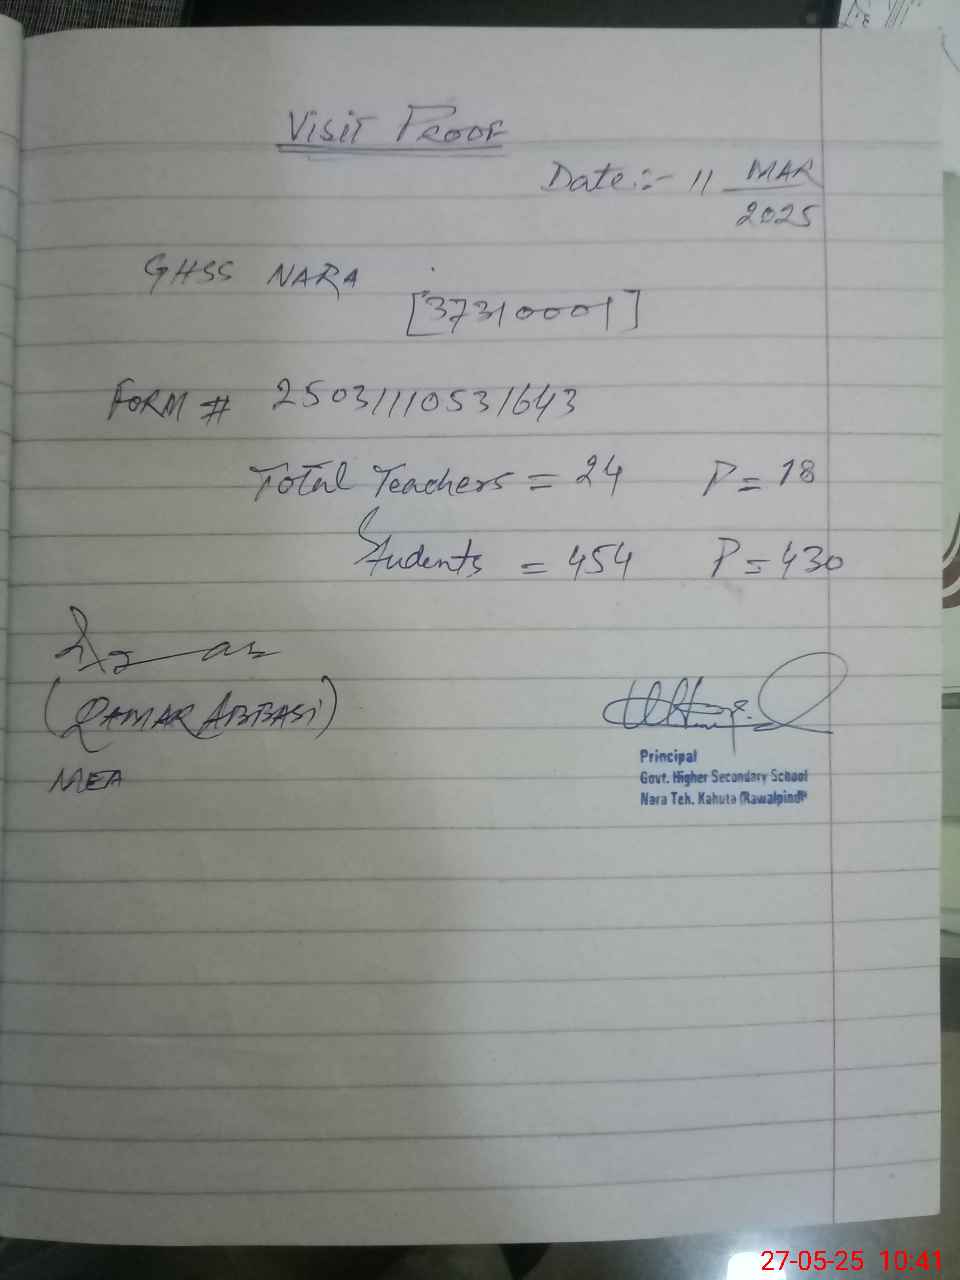 Visit Proof
Date:- 11 MAR
2025
GHSS NARA
[37310001]
FORM # 25031110531643
Total Teachers = 24 P = 18
Students = 454 P = 430
(QAMAR ABBASI)
MEA
Principal
Govt. Higher Secondary School
Nara Teh. Kahuta (Rawalpindi)
27-05-25 10:41